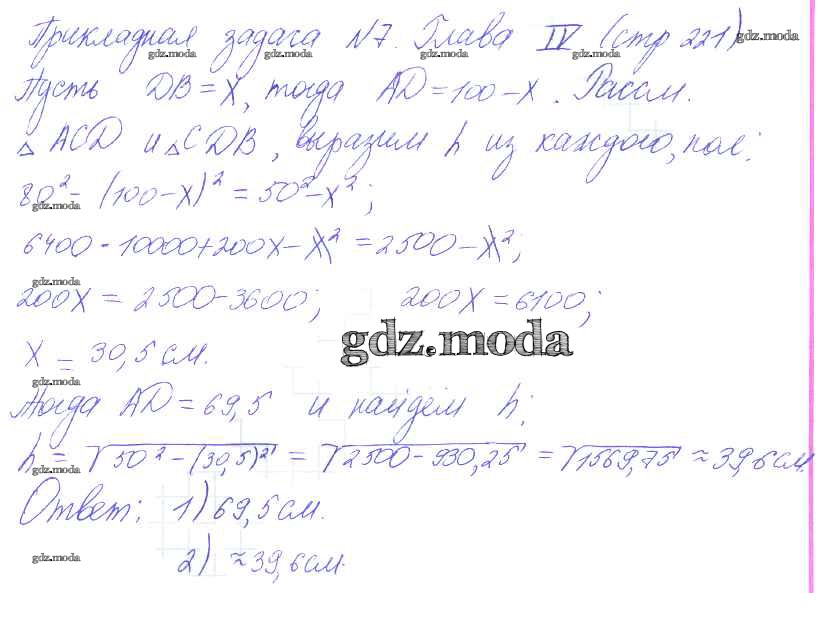 Прикладная задача №7. Глава IV (стр 221)
gdz.moda gdz.moda gdz.moda gdz.moda gdz.moda
Пусть DB = x, тогда AD = 100 - x. Рассм.
△ ACD и △ CDB, выразим h из каждого, пол:
80² - (100 - x)² = 50² - x²;
gdz.moda
6400 - 10000 + 200x - x² = 2500 - x²;
gdz.moda
200x = 2500 - 3600; 200x = 6100;
gdz.moda
x = 30,5 см.
gdz.moda
Тогда AD = 69,5 и найдем h:
h = √50² - (30,5)² = √2500 - 930,25 = √1569,75 ≈ 39,6 см.
gdz.moda
Ответ: 1) 69,5 см.
2) ≈ 39,6 см.
gdz.moda